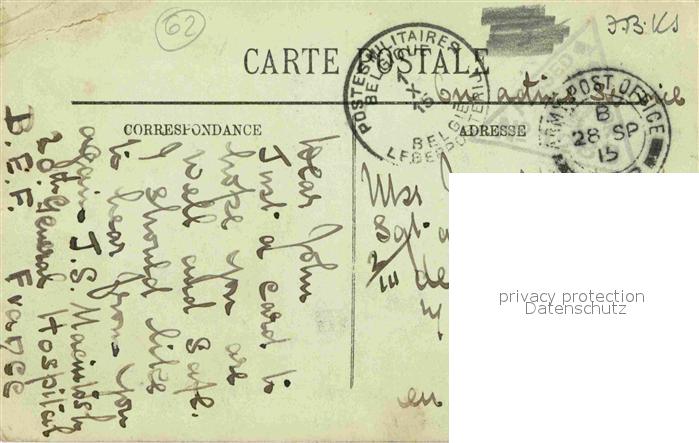 62
J.B.KS
CARTE POSTALE
POSTES MILITAIRES
BELGIQUE
1 X 15
BELGIE
LEGERPOSTERIJ
ARMY POST OFFICE
B
28 SP
15
On active Service
CORRESPONDANCE
ADRESSE
Dear John
Just a card to
hope you are
well and safe.
I should like
to hear from you
again. J.S. Macintosh
20th General Hospital
B.E.F. France
Sgt
2/III de
en
privacy protection
Datenschutz